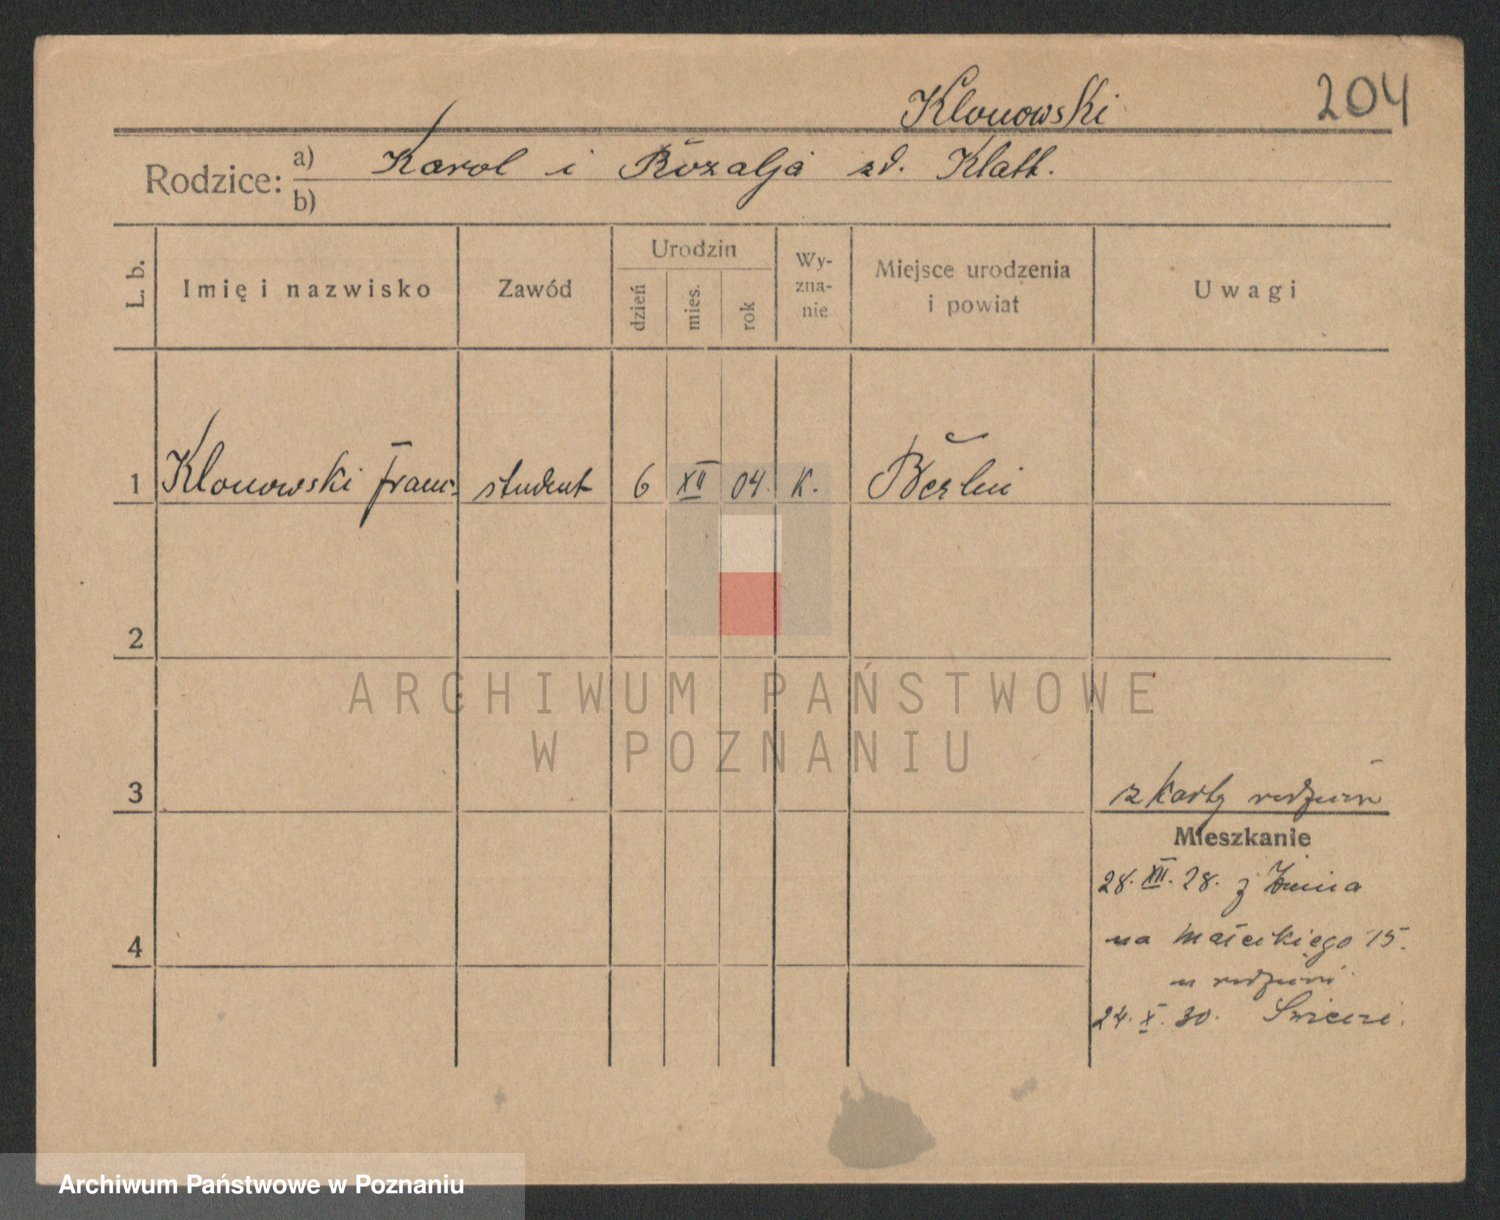 Klonowski 204
Rodzice: a) Karol i Rozalja zd. Klatt.
b)
L. b. Imię i nazwisko Zawód Urodzin dzień mies. rok Wy-zna-nie Miejsce urodzenia i powiat Uwagi
1 Klonowski Franc. student 6 XII 04. K. Berlin
2
ARCHIWUM PAŃSTWOWE
W POZNANIU
3 z karty rodzinn
Mieszkanie
28. XII. 28. z Żnina
4 na Małeckiego 15.
u rodziny
24. X. 30.
Archiwum Państwowe w Poznaniu